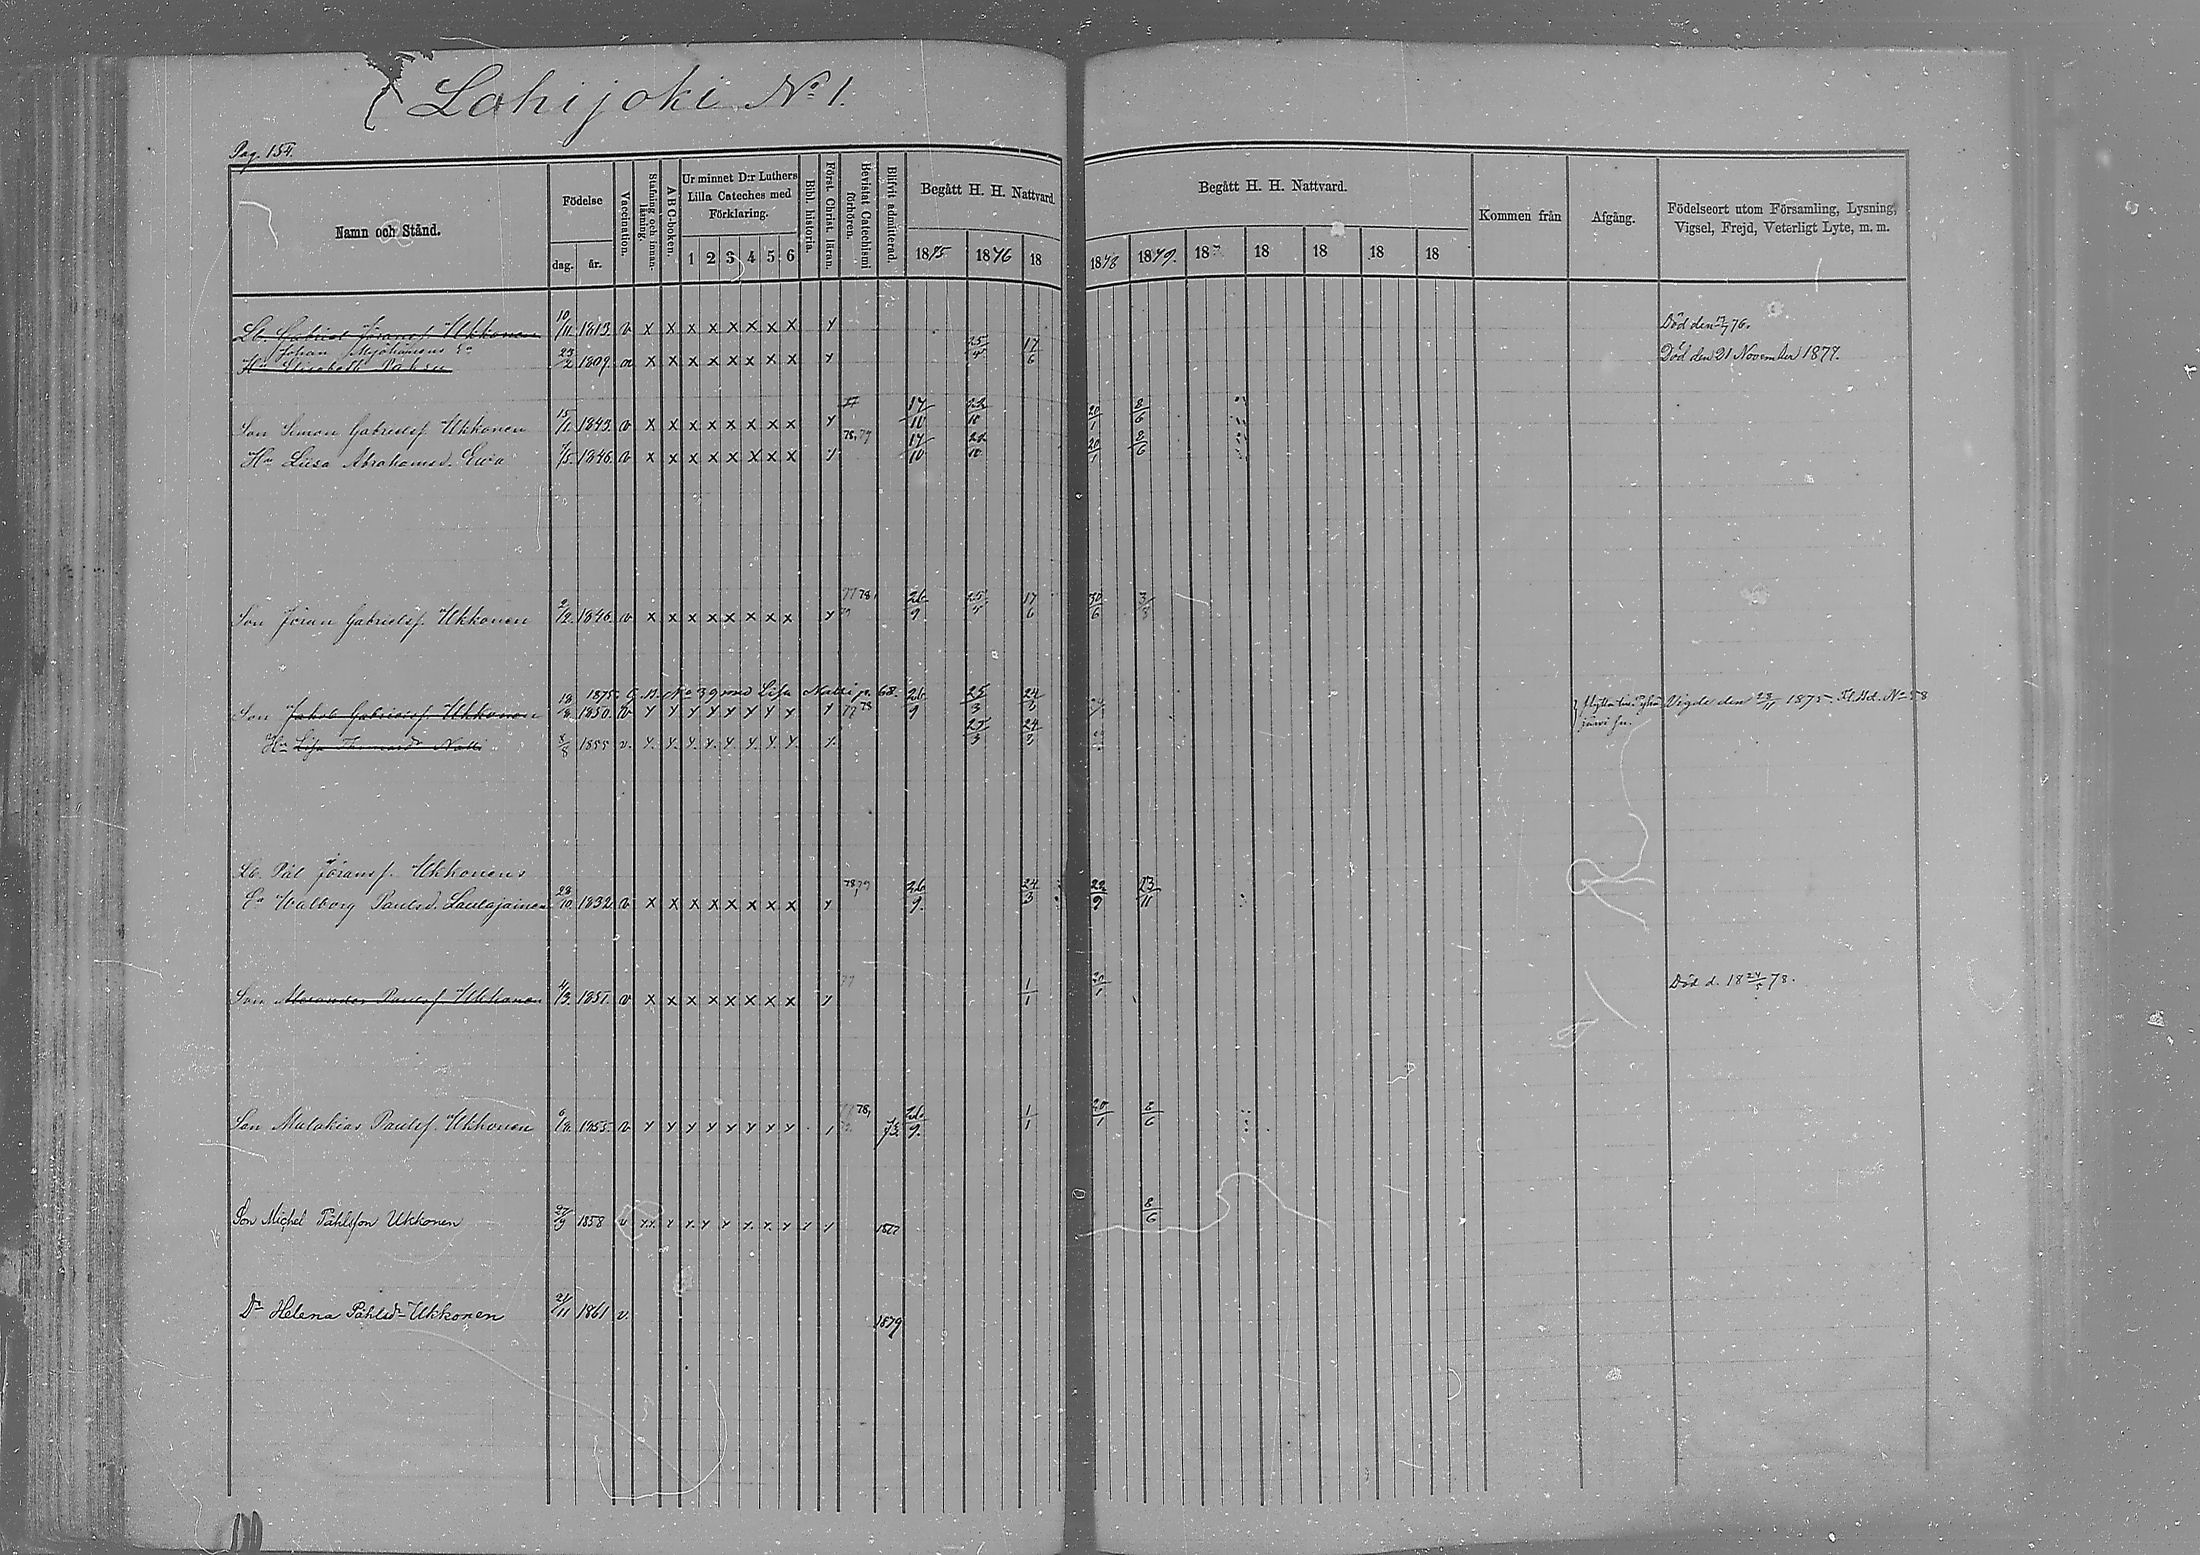 Lahijoki No 1.
Pag. 154.
Namn och Stånd.
Födelse
dag. år.
Vaccination.
Stafning och innan-läsning.
ABC-boken.
Ur minnet D:r Luthers
Lilla Cateches med
Förklaring.
1 2 3 4 5 6
Bibl. historia.
Först. Christ. läran.
Bevistat Catechismi förhören.
Blifvit admitterad.
Begått H. H. Nattvard.
1875 1876 18
Begått H. H. Nattvard.
1878 1879. 187 18 18 18 18
Kommen från
Afgång.
Födelseort utom Församling, Lysning,
Vigsel, Frejd, Veterligt Lyte, m. m.
Lb. Gabriel Jöransf. Ukkonen 10/11 1813. v x x x x x x x x y Död den 76.
Johan
Hu Elisabeth 23/2 1809. x x x x x x x x y 25 17/6 Död den 21 November 1877.
Son Simon Gabrielsf. Ukkonen 15/1 1843. v x x x x x x x x y 17/10 22/10 20/1 8/6
Hu Liisa Abrahamsd. Ewa 1/5 1846. v x x x x x x x x y 78, 79 17/10 22/10 20/1 8/6
Son Jöran Gabrielsf. Ukkonen 2/2 1846. v x x x x x x x x y 77 78, 26/9 25 17/6 30/6 3/8
1875. No 39 med Lisa Natti p. 68.
Son Jakob Gabrielsf. Ukkonen 18/8 1850. v y y y y y y y y y 77 78 26/9 25/3 24/3 Vigde den 28/11 1875 No 58
Hu Lisa Natti 8/8 1855 v. y. y. y. y. y. y. y. y. y. 25/3 24/3
Lb. Pål Jöransf. Ukkonens
Ea Walborg Paulsd. Laulajainen 28/10 1832 v x x x x x x x x y 78, 79 26/9. 24/3 22/9 23/11
Son Alexander Paulsf. Ukkonen 4/3 1851. v x x x x x x x x y 77 1/1 20/1 Död d. 18 24 78.
Son Malakias Paulsf. Ukkonen 6/12. 1855. v. y y y y y y y y 77 78, 73. 26/9. 1/1 20/1 8/6
Son Michel Påhlsson Ukkonen 27/9 1858 v 1877 8/6
Dr Helena Påhlsd. Ukkonen 21/11 1861 v. 1879